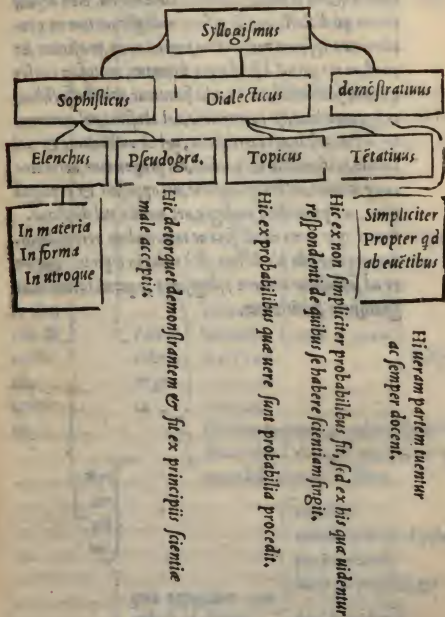 Syllogiſmus
Sophiſticus
Dialecticus
demõſtratiuus
Elenchus
Pſeudogra.
Topicus
Tẽtatiuus
In materia
In forma
In utroque
Simpliciter
Propter qd
ab euẽtibus
Hic detorquet demonſtrantem & fit ex principiis ſcientiæ
male acceptis.
Hic ex probabilibus quæ uere ſunt probabilia procedit.
Hic ex non ſimpliciter probabilibus fit, ſed ex his quæ uidentur
reſpondenti de quibus ſe habere ſcientiam fingit.
Hi ueram partem tuentur
ac ſemper docent.